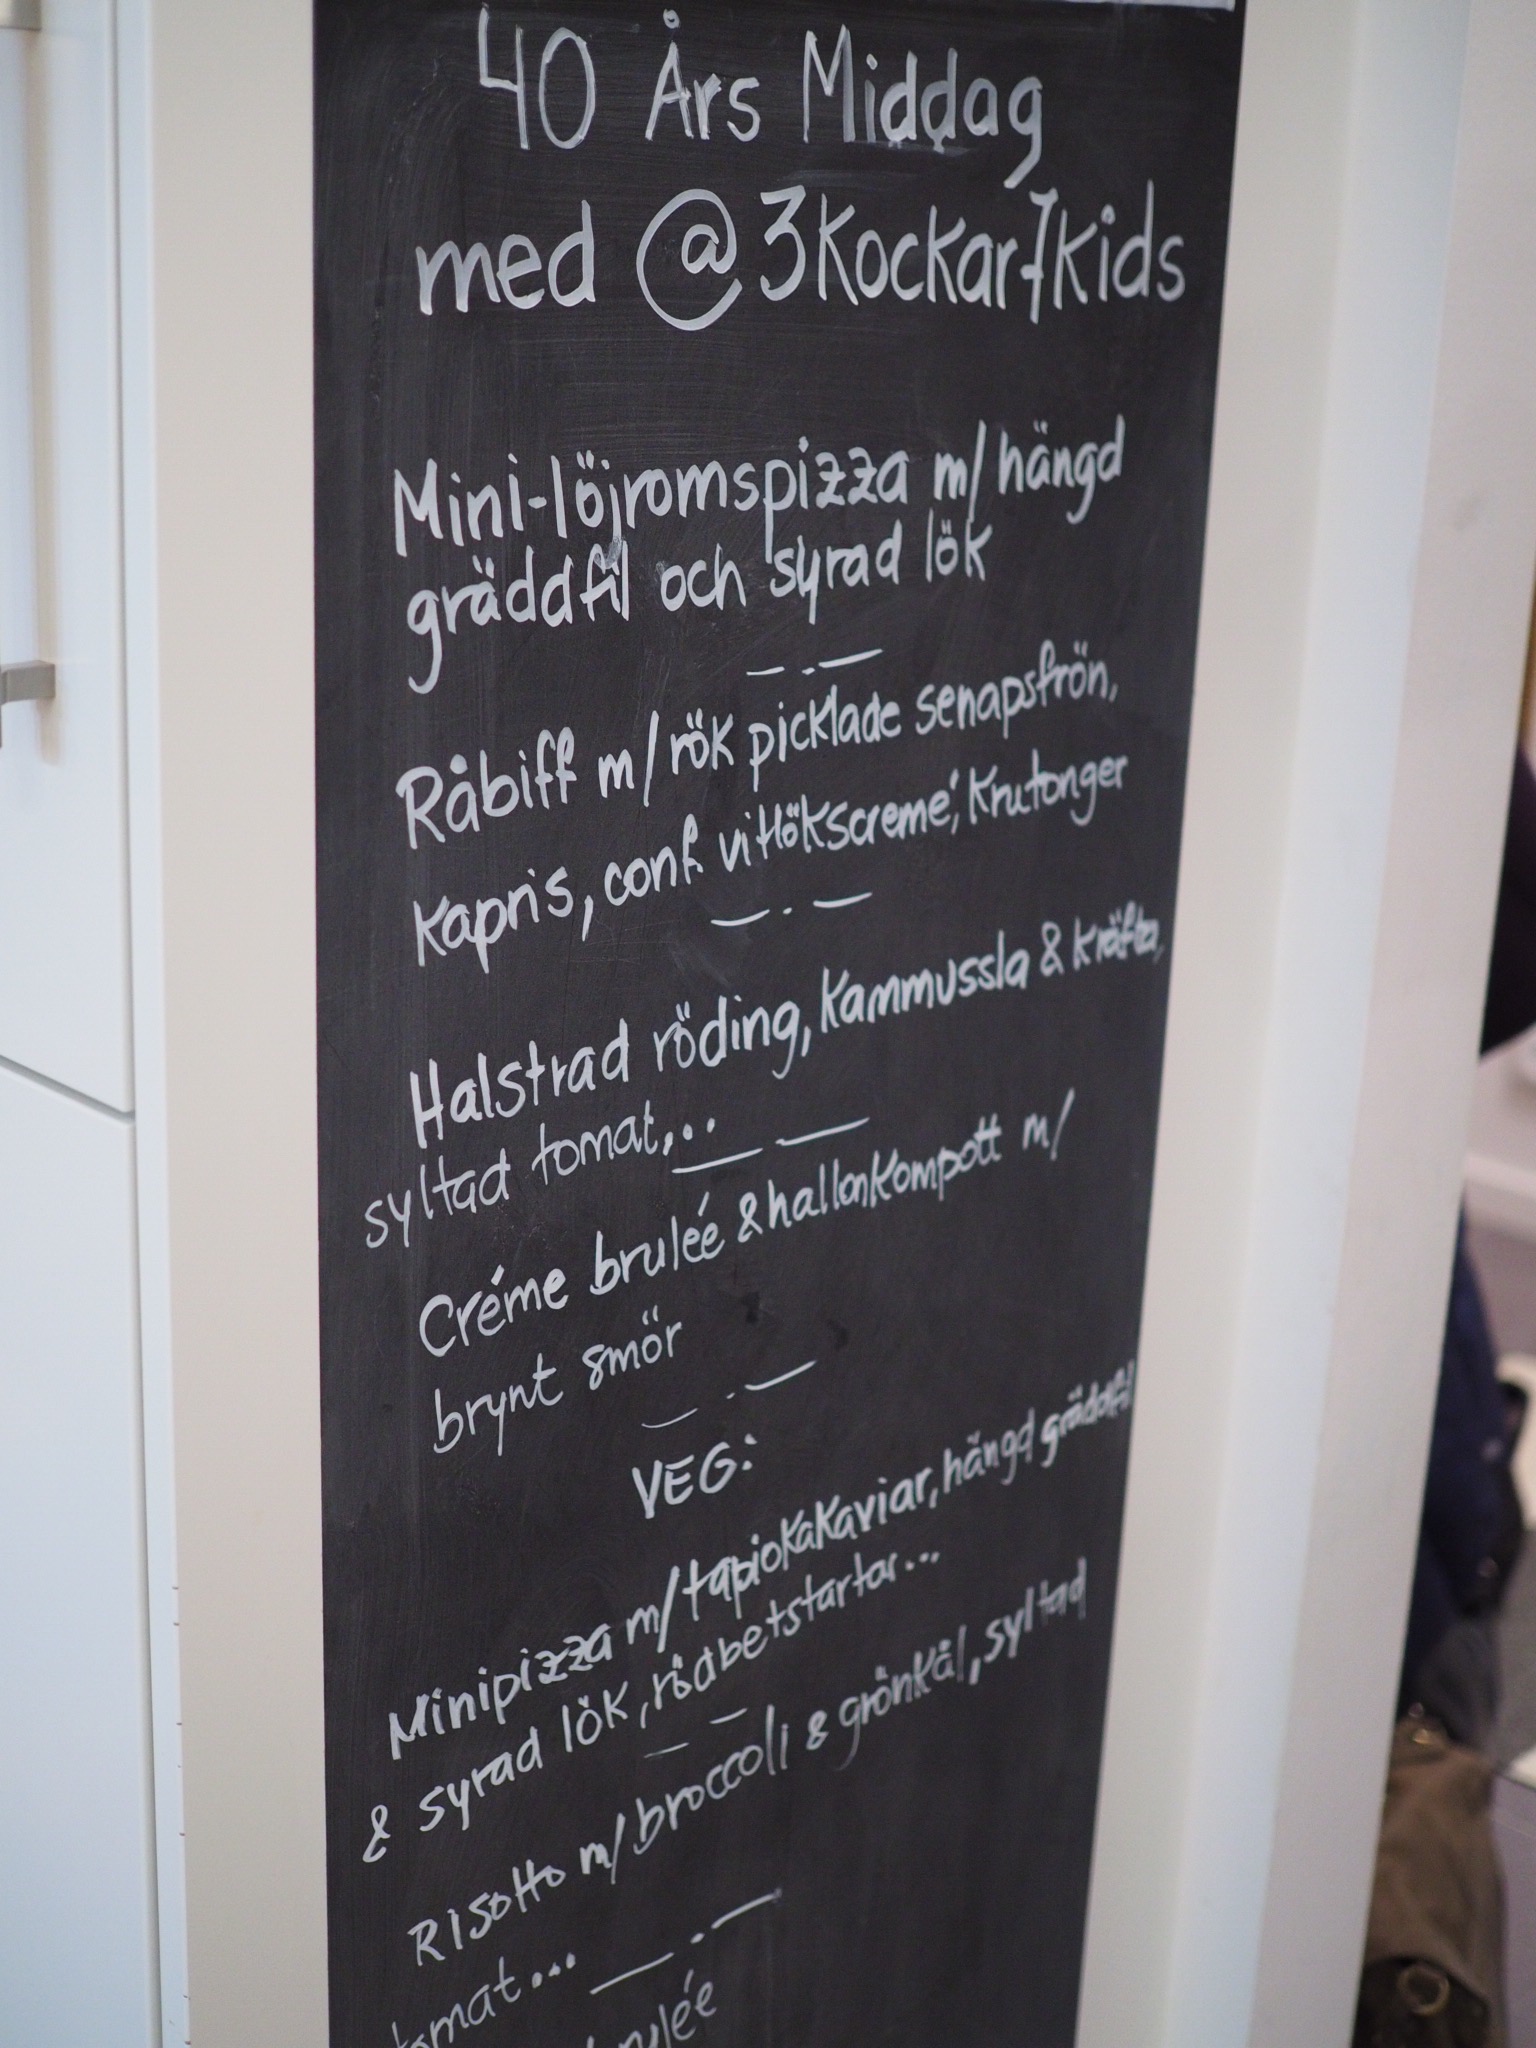 40 Års Middag
med @3kockar7kids
Mini-löjromspizza m/ hängd
gräddfil och syrad lök
Råbiff m/ rök picklade senapsfrön,
kapris, conf. vitlökscreme', krutonger
Halstrad röding, kammussla & kräfta,
syltad tomat...
Créme bruléé & hallonkompott m/
brynt smör
VEG:
Minipizza m/ tapiokakaviar, hängd gräddfil
& syrad lök, rödbetstartar...
Risotto m/ broccoli & grönkål, syltad
tomat...